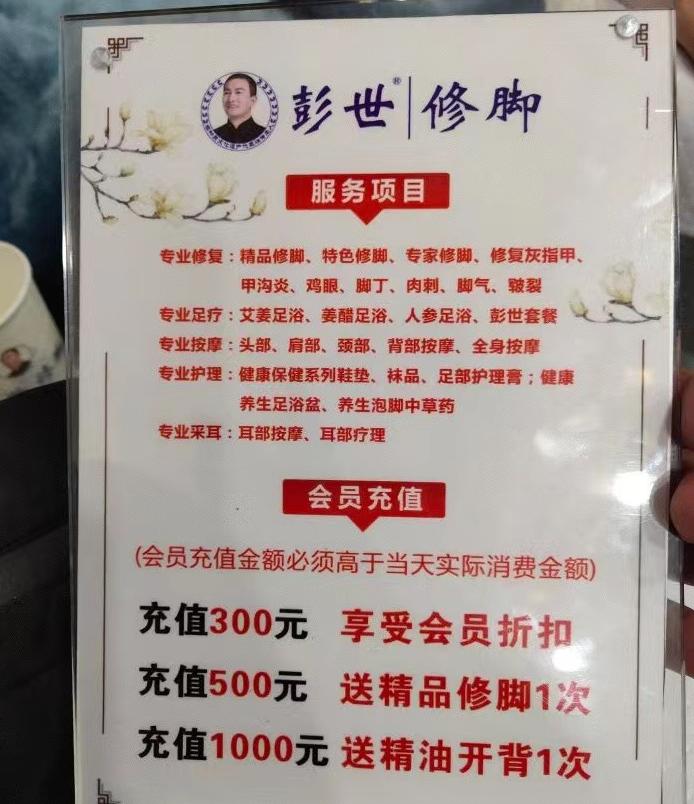 彭世®|修脚
服务项目
专业修复：精品修脚、特色修脚、专家修脚、修复灰指甲、
甲沟炎、鸡眼、脚丁、肉刺、脚气、皲裂
专业足疗：艾姜足浴、姜醋足浴、人参足浴、彭世套餐
专业按摩：头部、肩部、颈部、背部按摩、全身按摩
专业护理：健康保健系列鞋垫、袜品、足部护理膏；健康
养生足浴盆、养生泡脚中草药
专业采耳：耳部按摩、耳部疗理
会员充值
(会员充值金额必须高于当天实际消费金额)
充值300元 享受会员折扣
充值500元 送精品修脚1次
充值1000元 送精油开背1次